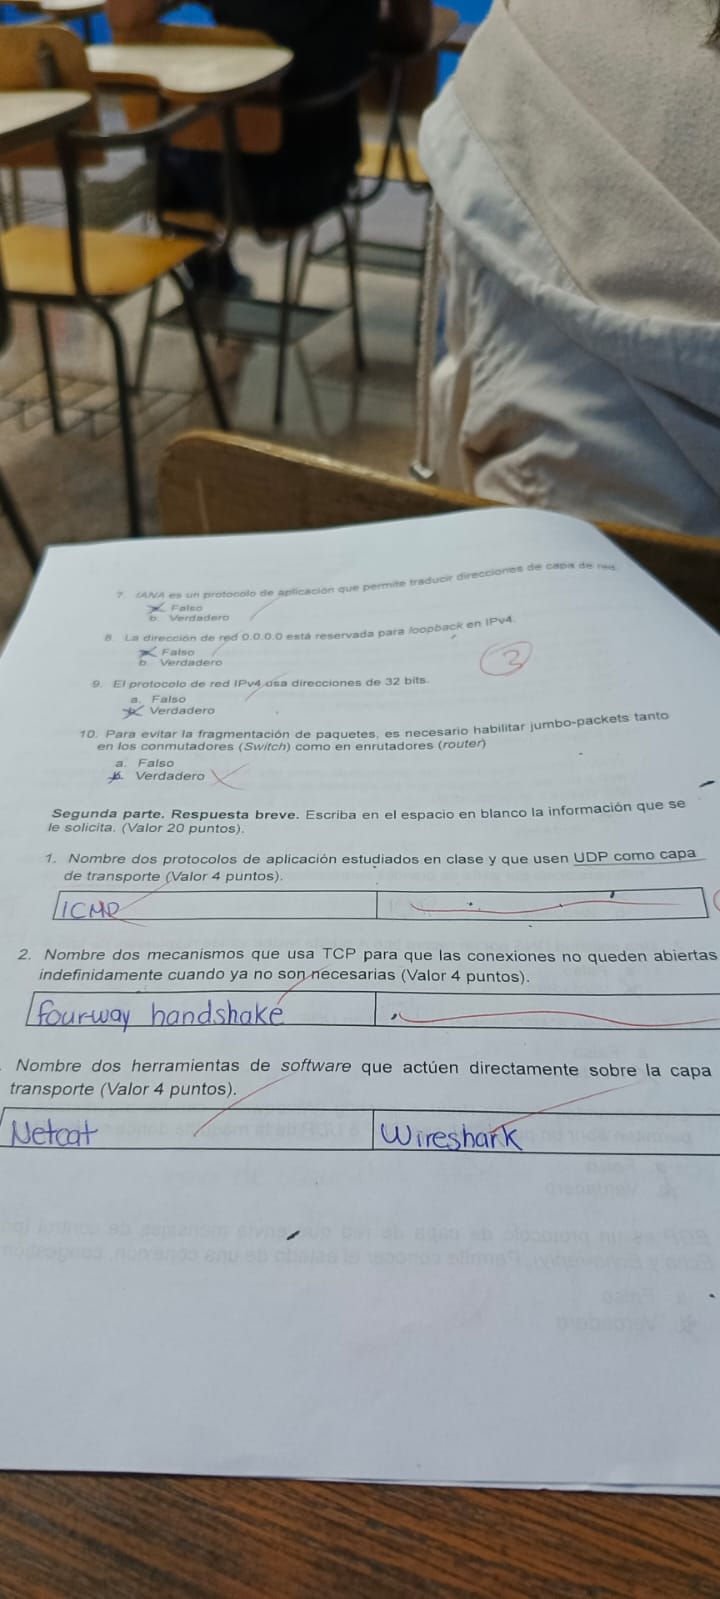 7. IANA es un protocolo de aplicación que permite traducir direcciones de capa de red
a. Falso
b. Verdadero
8. La dirección de red 0.0.0.0 está reservada para loopback en IPv4.
a. Falso
b. Verdadero
3
9. El protocolo de red IPv4 usa direcciones de 32 bits.
a. Falso
b. Verdadero
10. Para evitar la fragmentación de paquetes, es necesario habilitar jumbo-packets tanto
en los conmutadores (Switch) como en enrutadores (router)
a. Falso
b. Verdadero
Segunda parte. Respuesta breve. Escriba en el espacio en blanco la información que se
le solicita. (Valor 20 puntos).
1. Nombre dos protocolos de aplicación estudiados en clase y que usen UDP como capa
de transporte (Valor 4 puntos).
ICMP
2. Nombre dos mecanismos que usa TCP para que las conexiones no queden abiertas
indefinidamente cuando ya no son necesarias (Valor 4 puntos).
fourway handshake
Nombre dos herramientas de software que actúen directamente sobre la capa
transporte (Valor 4 puntos).
Netcat Wireshark